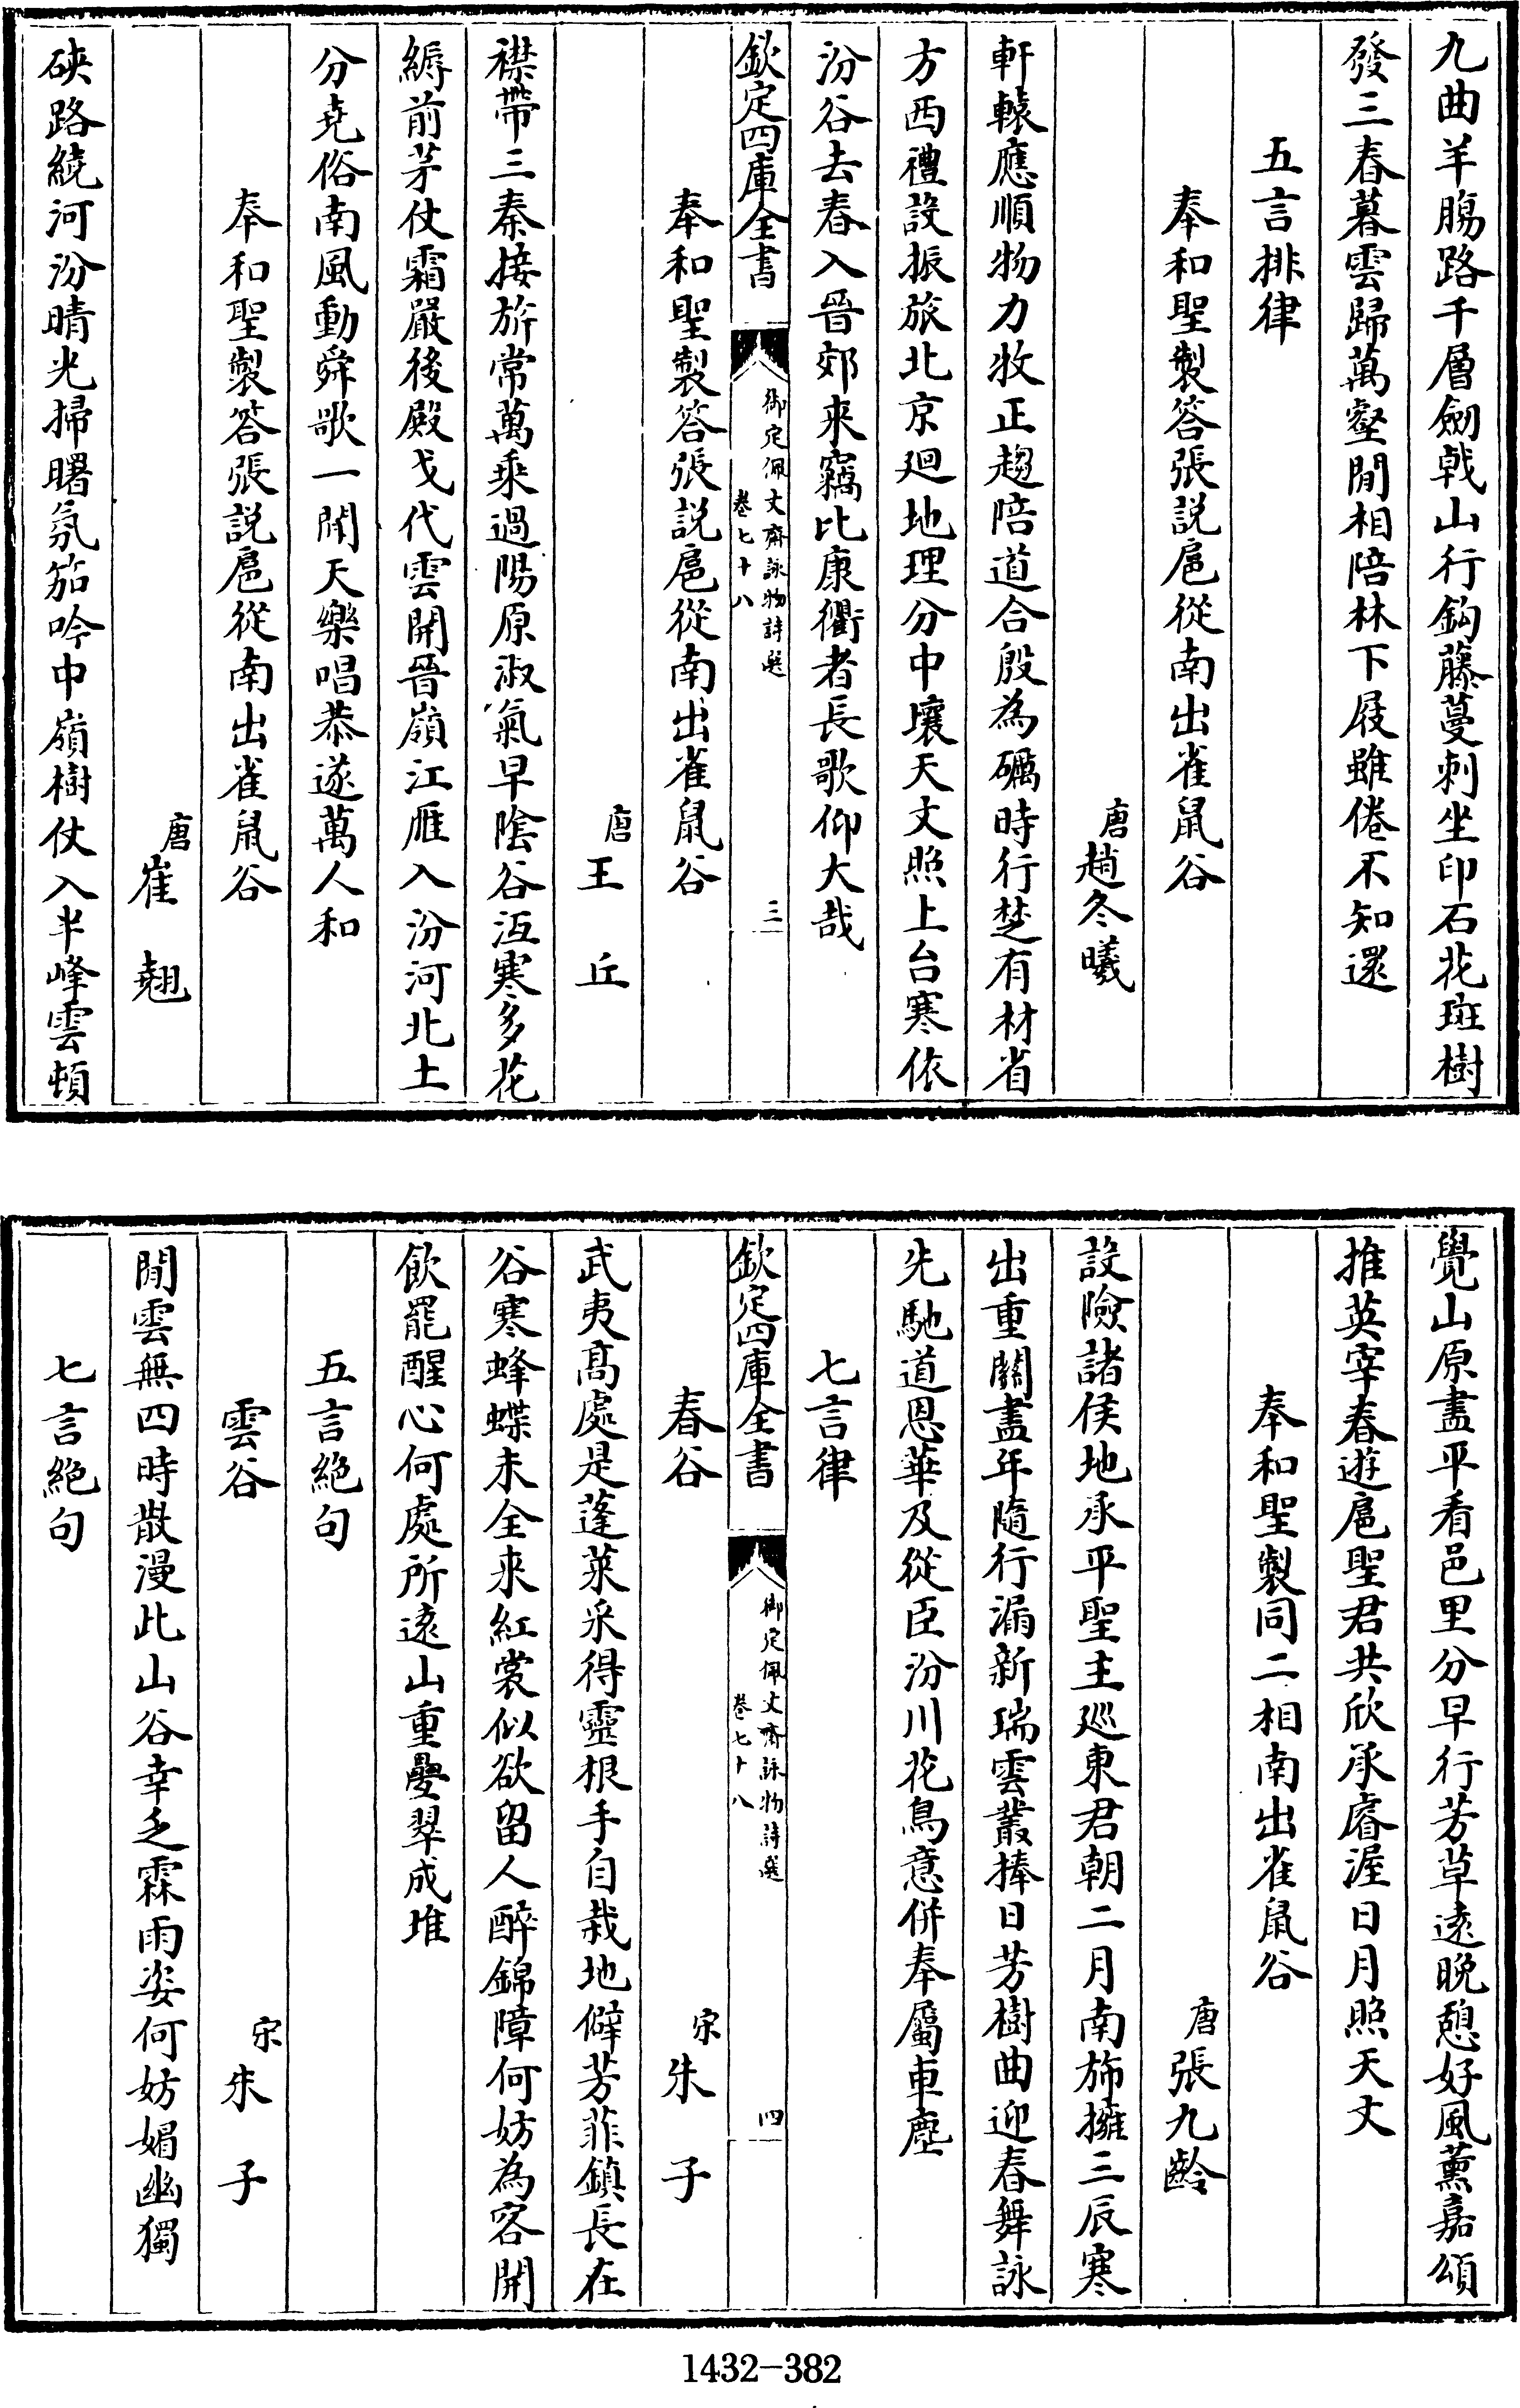 九曲羊腸路千層劒㦸山行鈎藤蔓刺坐印石花斑樹
發三春暮雲歸萬壑閒相陪林下屐雖倦不知還
五言排律
奉和聖製答張説扈從南出雀鼠谷
唐趙冬曦
軒轅應順物力牧正趨陪道合殷為礪時行楚有材省
方西禮設振旅北京廻地理分中壤天文照上台寒依
汾谷去春入晉郊来竊比康衢者長歌仰大哉
欽定四庫全書
御定佩文齋詠物詩選
卷七十八
三
奉和聖製答張説扈從南出雀鼠谷
唐王丘
襟帶三秦接旂常萬乘過陽原淑氣早陰谷沍寒多花
縟前茅仗霜嚴後殿戈代雲開晉嶺江雁入汾河北土
分堯俗南風動舜歌一聞天樂唱恭遂萬人和
奉和聖製答張説扈從南出雀鼠谷
唐崔翹
硤路繞河汾晴光掃曙氛笳吟中嶺樹仗入半峰雲頓
覺山原盡平看邑里分早行芳草逺晩憩好風薫嘉頌
推英宰春遊扈聖君共欣承睿渥日月照天文
奉和聖製同二相南出雀鼠谷
唐張九齡
設險諸侯地承平聖主廵東君朝二月南斾擁三辰寒
出重關盡年隨行漏新瑞雲叢捧日芳樹曲迎春舞詠
先馳道恩華及從臣汾川花鳥意併奉屬車塵
七言律
欽定四庫全書
御定佩文齋詠物詩選
卷七十八
四
春谷
宋朱子
武夷髙處是蓬萊采得靈根手自栽地僻芳菲鎮長在
谷寒蜂蝶未全来紅裳似欲留人醉錦障何妨為客開
飲罷醒心何處所逺山重疊翠成堆
五言絶句
雲谷
宋朱子
閒雲無四時散漫此山谷幸乏霖雨姿何妨媚幽獨
七言絶句
1432-382